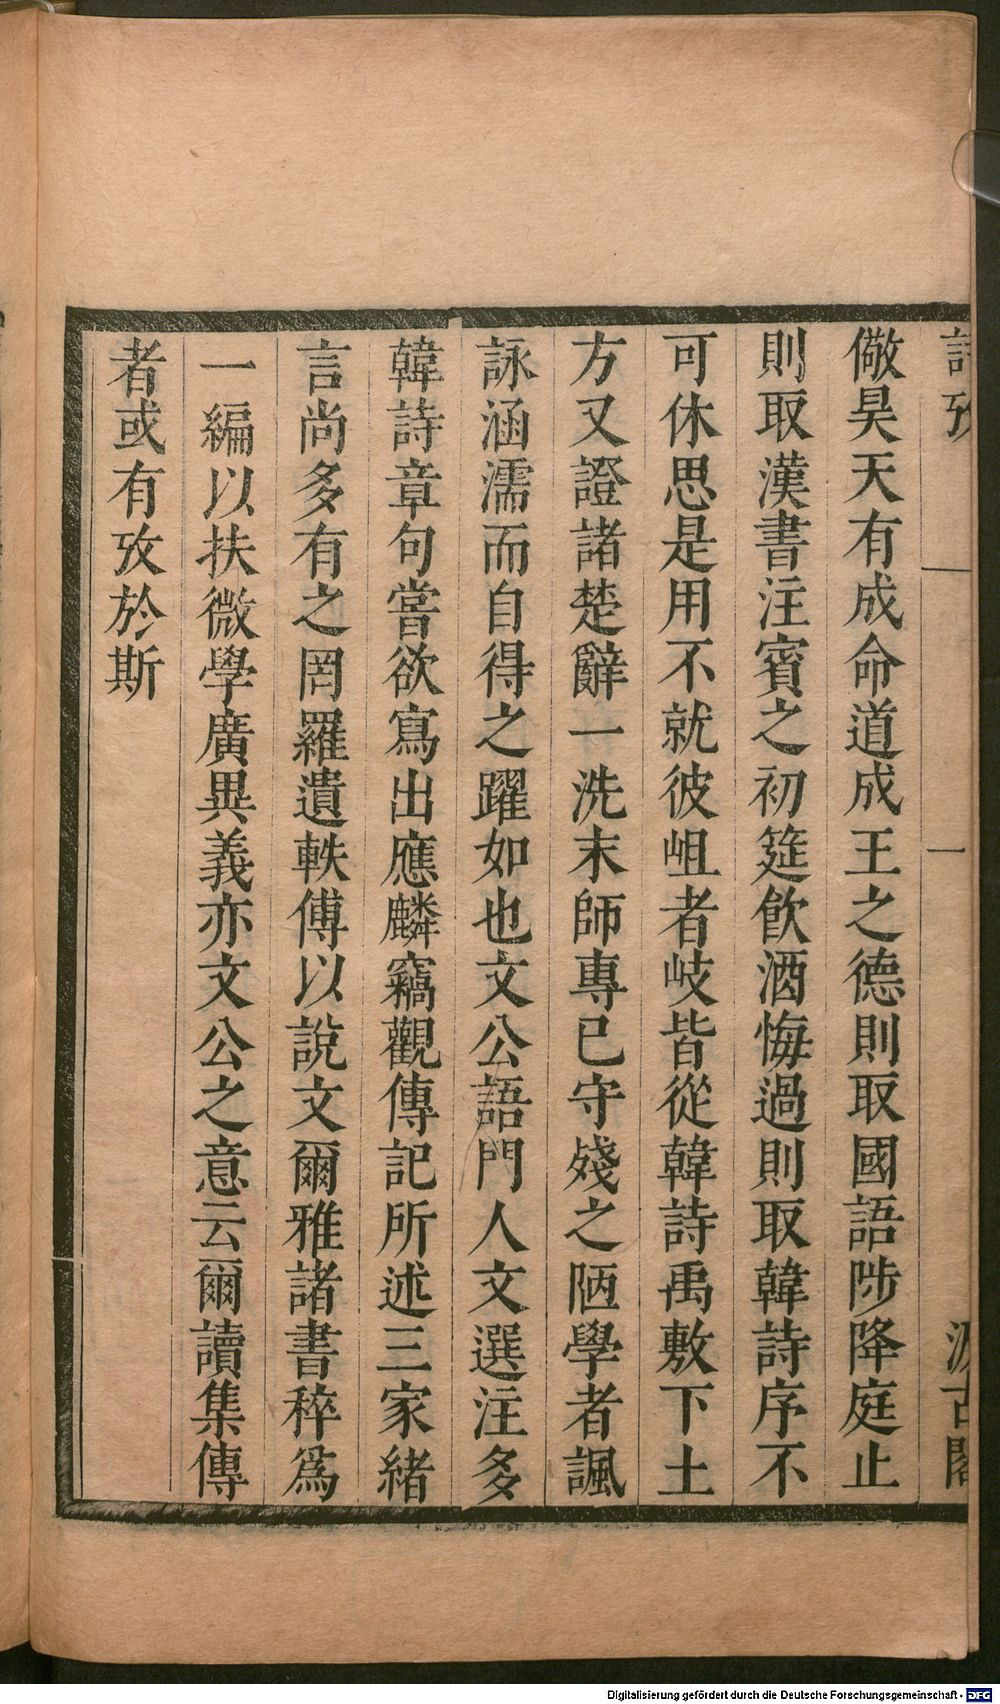 詩攷 一 汲古閣
儆昊天有成命道成王之德則取國語陟降庭止
則取漢書注賓之初筵飲酒悔過則取韓詩序不
可休思是用不就彼岨者岐皆從韓詩禹敷下土
方又證諸楚辭一洗末師專已守殘之陋學者諷
詠涵濡而自得之躍如也文公語門人文選注多
韓詩章句嘗欲寫出應麟竊觀傳記所述三家緒
言尚多有之罔羅遺軼傅以說文爾雅諸書稡爲
一編以扶微學廣異義亦文公之意云爾讀集傳
者或有攷於斯
Digitalisierung gefördert durch die Deutsche Forschungsgemeinschaft - DFG